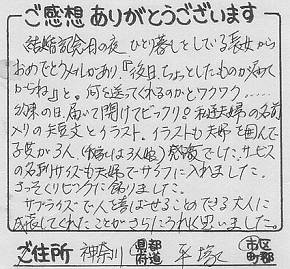 ご感想ありがとうございます
結婚記念日の夜 ひとり暮しをしている長女から
おめでとうメールがあり、『後日、ちょっとしたものが届く
からね』と。何を送ってくれるのかとワクワク……
約束の日、届いて開けてビックリ!! 私達夫婦の名前
入りの短文とイラスト。イラストも夫婦を囲んで
子供が3人。(我家は3人娘) 感激でした。サービス
の名刺サイズも夫婦でサイフに入れました。
さっそくリビングに飾りました。
サプライズで人を喜ばせることのできる大人に
成長してくれたことがさらにうれしく思いました。
ご住所 神奈川 都道府県 平塚 市区町郡